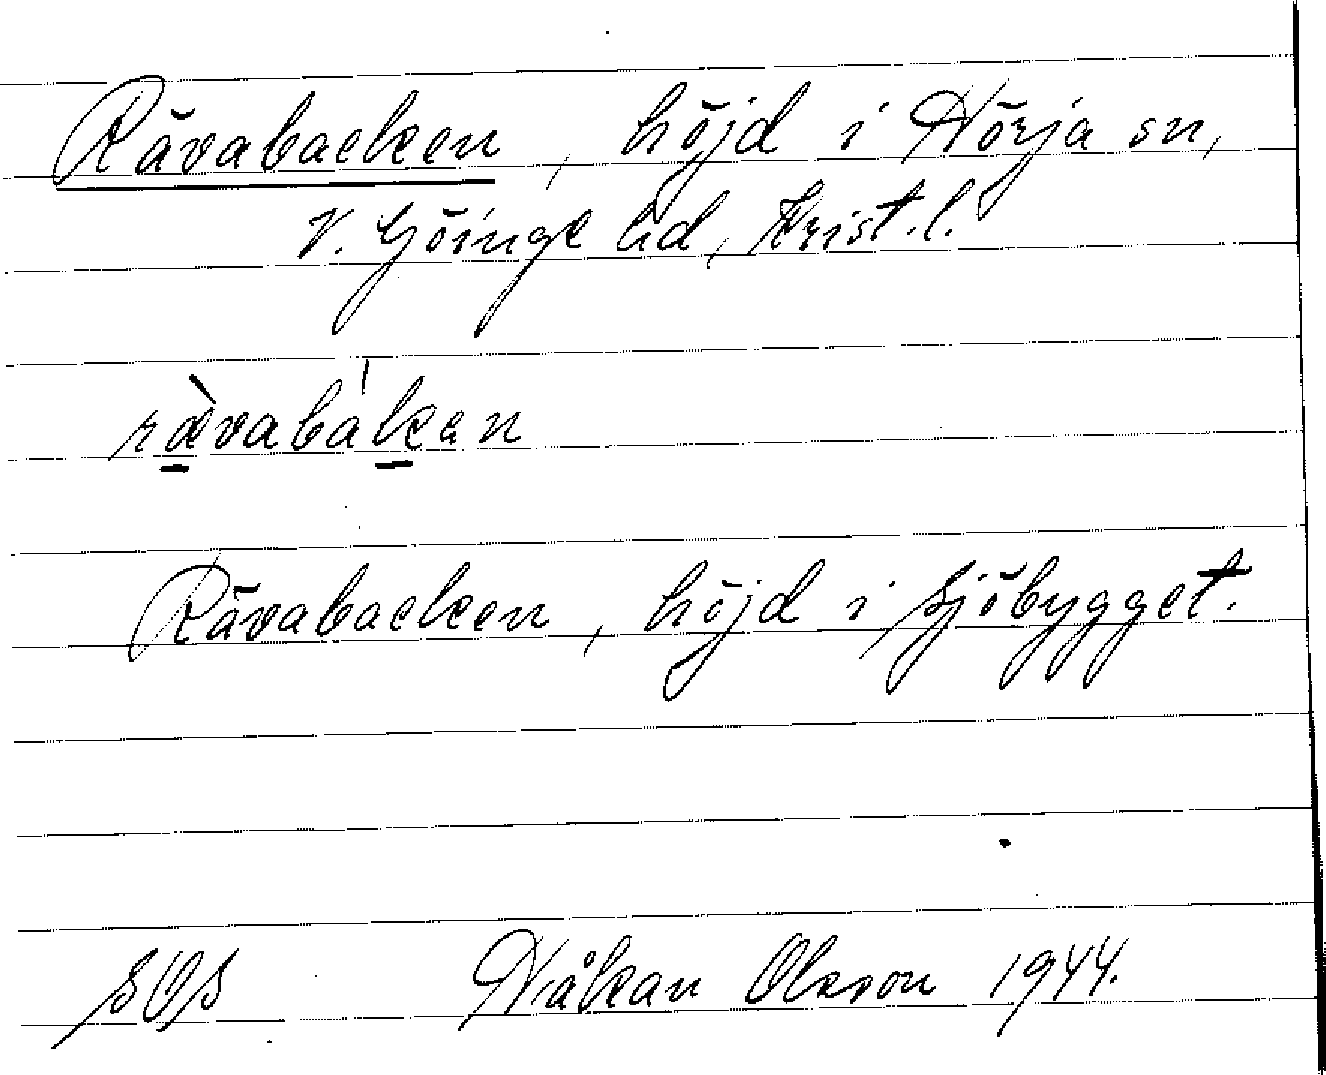 Rävabacken, höjd i Nörja sn,
V. Göinge hd, Krist. l.
rä̀vabákan
Rävabacken, höjd i Sjöbygget.
SOS Håkan Olsson 1944.